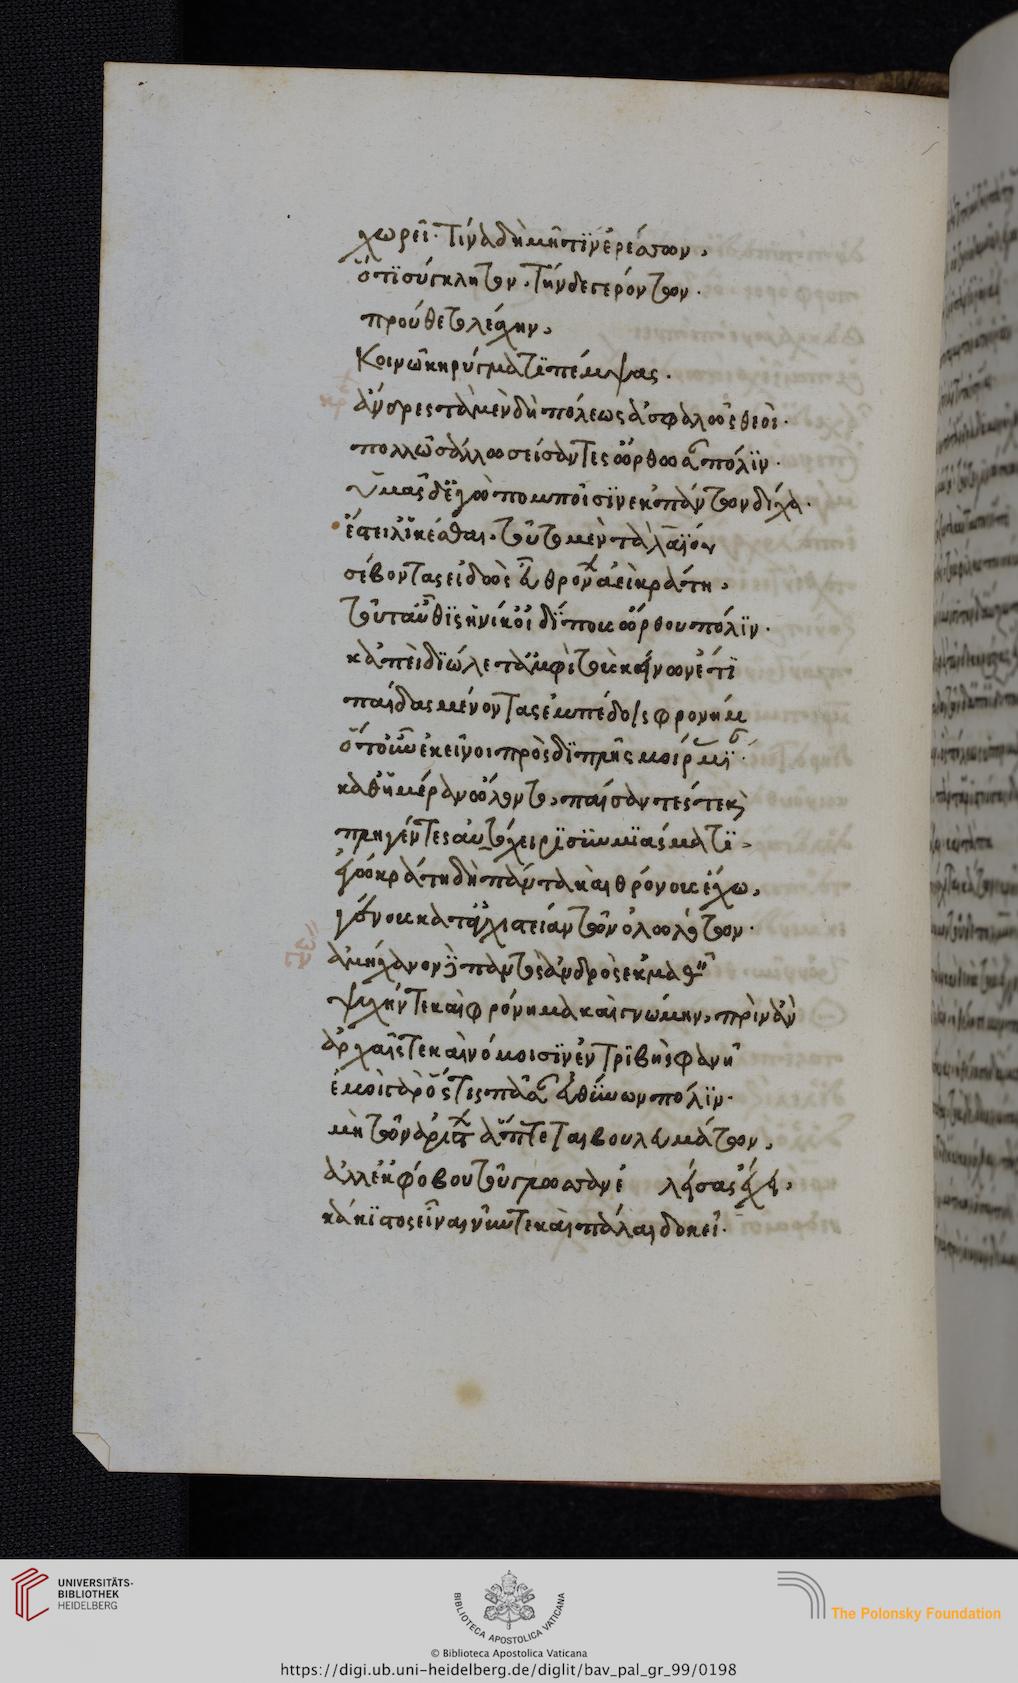 χωρεῖ· τίνα δὴ μῆτιν ἐρέσσων,
ὅτι σύγκλητον, τήνδε γερόντων·
προύθετο λέσχην,
Κοινῶ κηρύγματι πέμψας.
ἄνδρες τὰ μὲν δὴ πόλεως ἀσφαλῶς θεοὶ·
πολλῶ σάλω σείσαντες ὤρθωσαν πόλιν·
ὑμᾶς δ' ἐγὼ πομποῖσιν ἐκ πάντων δίχα·
ἔστειλ' ἱκέσθαι. τοῦτο μὲν τὰ λαΐου
σέβοντας εἰδὼς εὖ θρόνων ἀεὶ κράτη,
τοῦτ' αὖθις ἡνίκ' οἰδίπους ὤρθου πόλιν·
κἀπεὶ διώλετ' ἀμφὶ τοὺς κείνων ἔτι
παῖδας μένοντας ἐμπέδοις φρονήμ
ὅτ' οὖν ἐκεῖνοι πρὸς διπλῆς μοίρας μΐ
καθ' ἡμέραν ὤλοντο, παίσαντές τε καὶ
πληγέντες αὐτόχειρι σὺν μιάσματι,
ἐγὼ κράτη δὴ πάντα καὶ θρόνους ἔχω,
γένους κατ' ἀγχιστεῖα τῶν ὀλωλότων·
ἀμήχανον δὲ παντὸς ἀνδρὸς ἐκμαθεῖν
ψυχήν τε καὶ φρόνημα καὶ γνώμην, πρὶν ἂν
ἀρχαῖς τε καὶ νόμοισιν ἐντριβὴς φανῆ
ἐμοὶ γὰρ ὅστις πᾶσαν εὐθύνων πόλιν·
μὴ τῶν ἀρίστων ἅπτεται βουλευμάτων,
ἀλλ' ἐκ φόβου του γλῶσσαν ἐ λείσας ἔχει,
κάκιστος εἶναι νῦν τε καὶ πάλαι δοκεῖ·
UNIVERSITÄTS-
BIBLIOTHEK
HEIDELBERG
BIBLIOTECA APOSTOLICA VATICANA
The Polonsky Foundation
© Biblioteca Apostolica Vaticana
https://digi.ub.uni-heidelberg.de/diglit/bav_pal_gr_99/0198